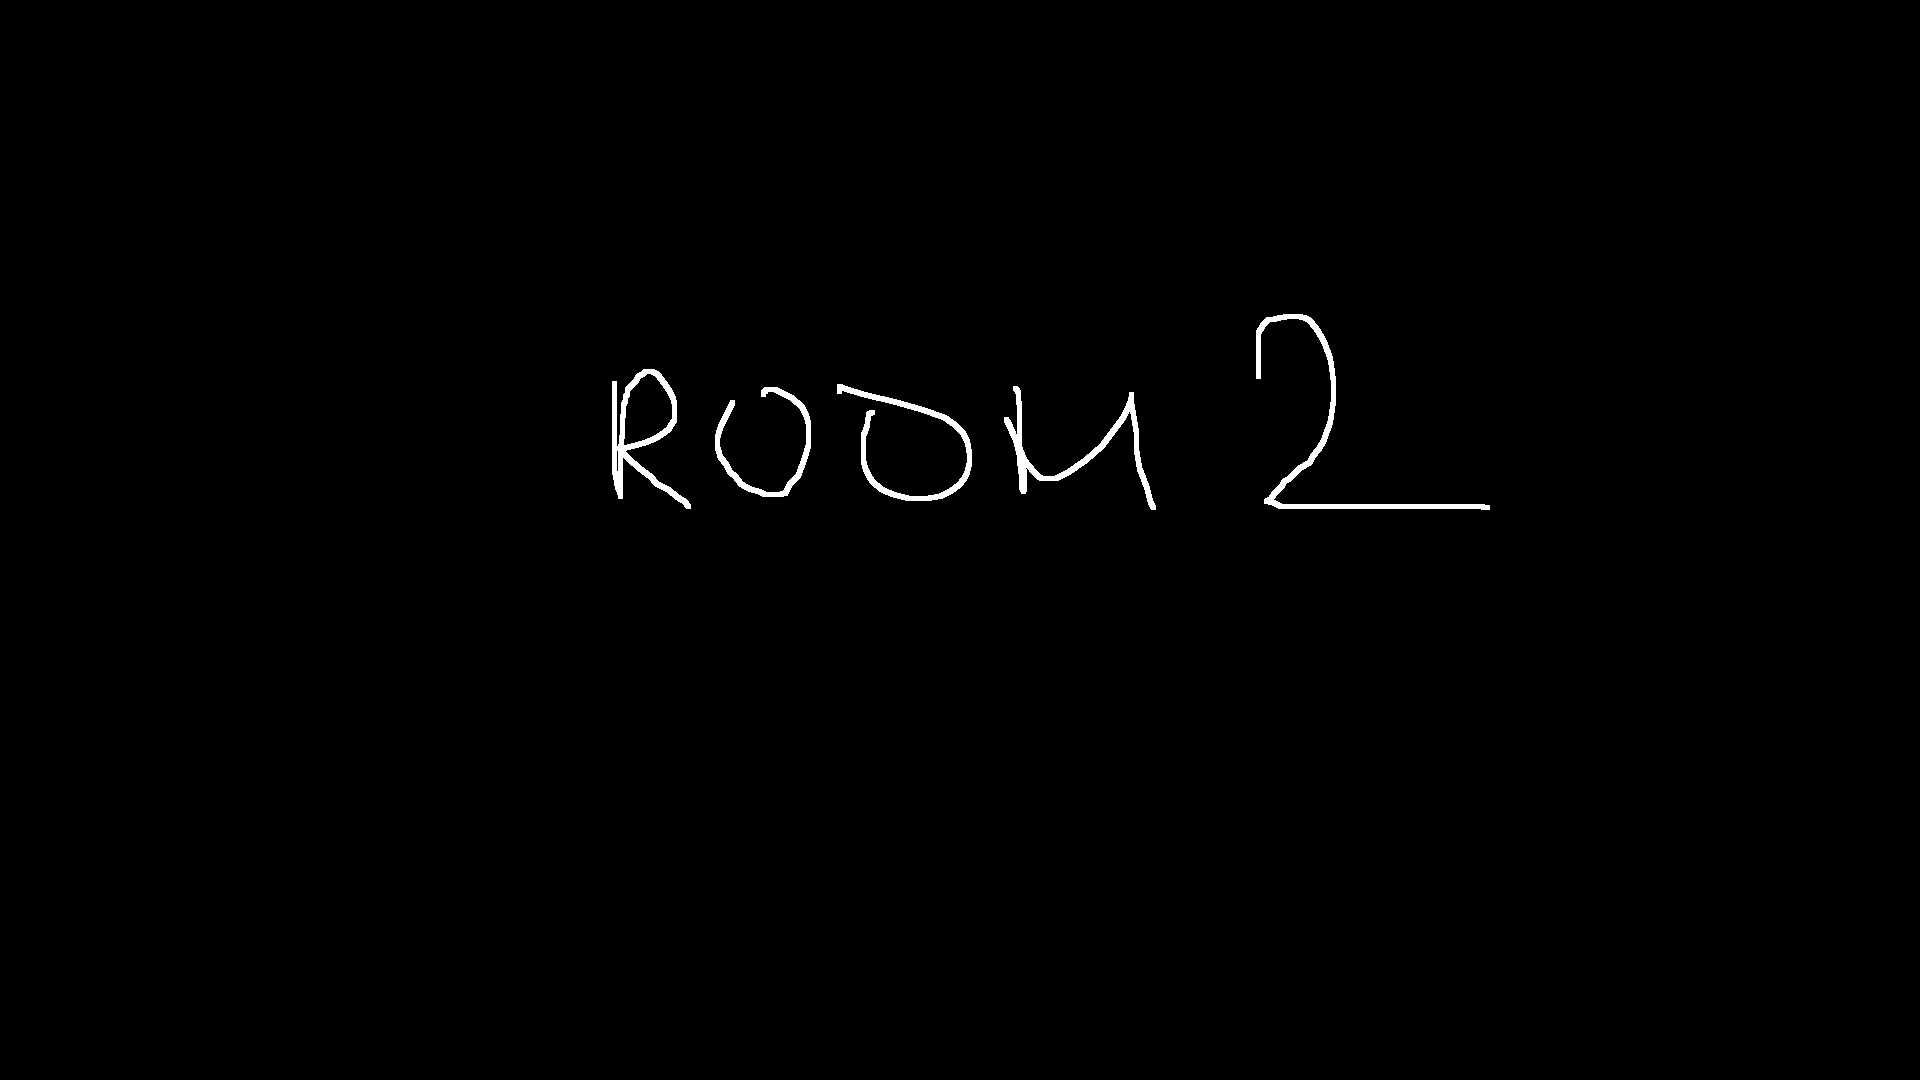 ROOM 2